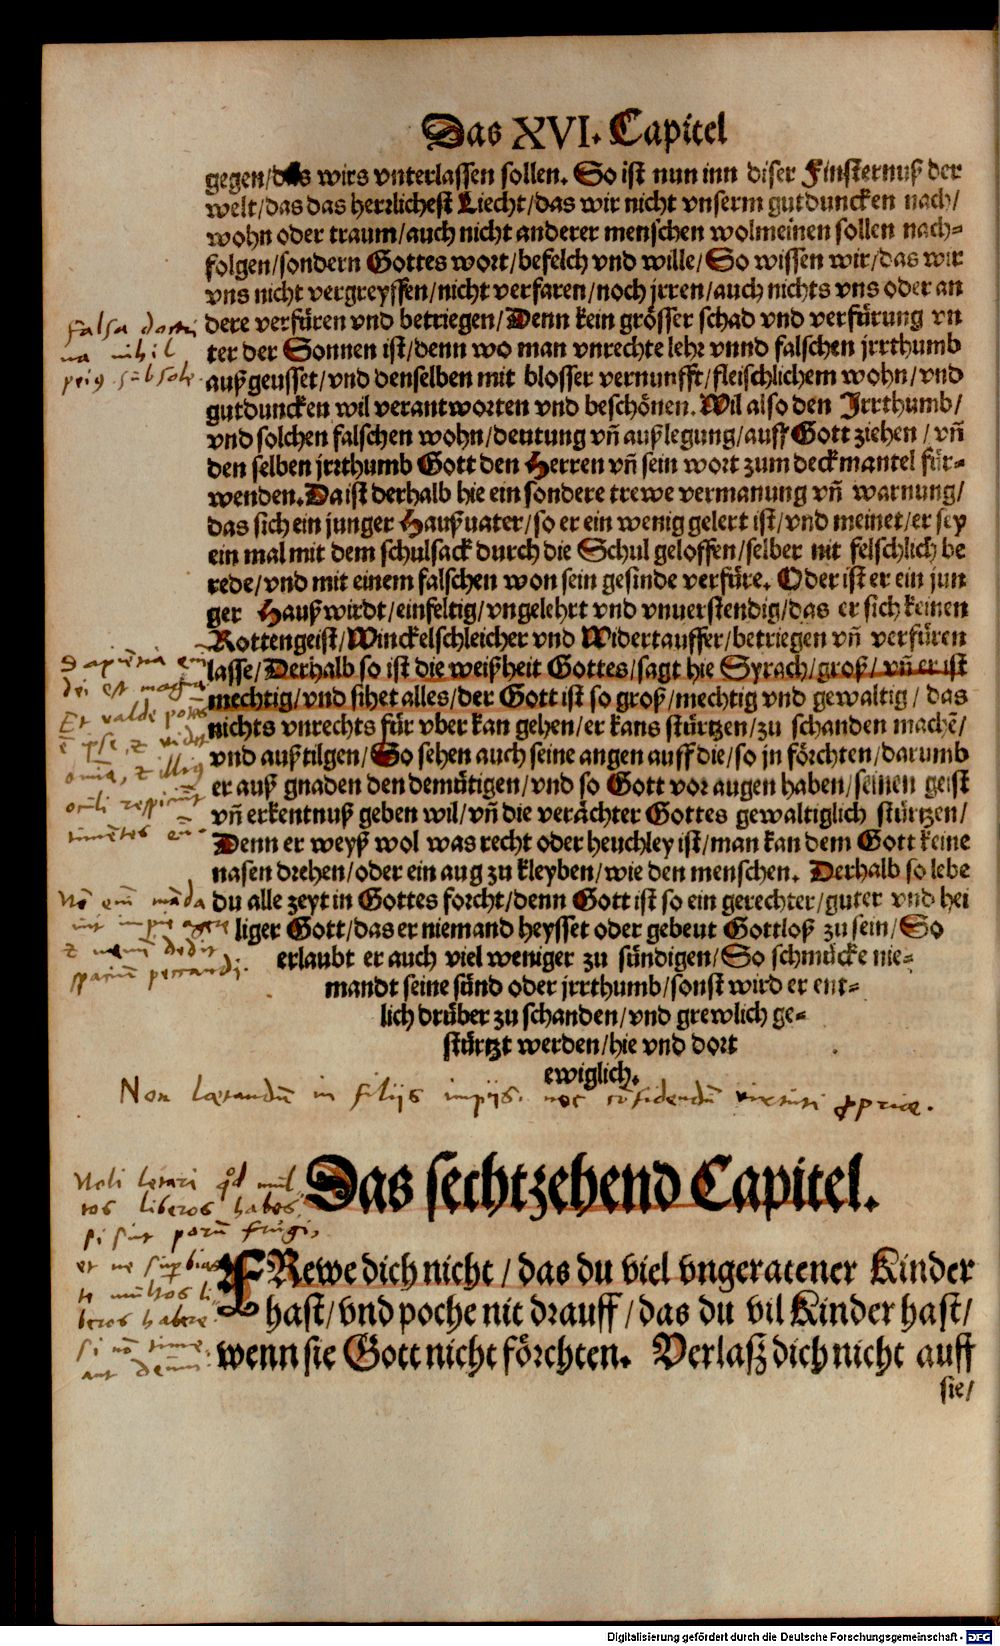 Das XVI. Capitel
gegen/das wirs vnterlassen sollen. So ist nun inn diser Finsternuß der
welt/das das herrlichest Liecht/das wir nicht vnserm gutduncken nach/
wohn oder traum/auch nicht anderer menschen wolmeinen sollen nach-
folgen/sondern Gottes wort/befelch vnd wille/So wissen wir/das wir
vns nicht vergreyffen/nicht verfaren/noch jrren/auch nichts vns oder an
dere verfüren vnd betriegen/Denn kein grösser schad vnd verfürung vn
ter der Sonnen ist/denn wo man vnrechte lehr vnnd falschen jrrthumb
außgeusset/vnd denselben mit blosser vernunfft/fleischlichem wohn/vnd
gutduncken wil verantworten vnd beschönen. Wil also den Irrthumb/
vnd solchen falschen wohn/deutung vñ außlegung/auff Gott ziehen/vñ
den selben jrrthumb Gott den Herren vñ sein wort zum deckmantel für-
wenden. Da ist derhalb hie ein sondere trewe vermanung vñ warnung/
das sich ein junger Haußuater/so er ein wenig gelert ist/vnd meinet/er sey
ein mal mit dem schulsack durch die Schul geloffen/selber nit felschlich be
rede/vnd mit einem falschen won sein gesinde verfüre. Oder ist er ein jun
ger Haußwirdt/einfeltig/vngelehrt vnd vnuerstendig/das er sich keinen
Rottengeist/Winckelschleicher vnd Widertauffer/betriegen vñ verfüren
lasse/Derhalb so ist die weißheit Gottes/sagt hie Syrach/groß/vñ er ist
mechtig/vnd sihet alles/der Gott ist so groß/mechtig vnd gewaltig/das
nichts vnrechts für vber kan gehen/er kans stürtzen/zu schanden machē/
vnd außtilgen/So sehen auch seine augen auff die/so in förchten/darumb
er auß gnaden den demütigen/vnd so Gott vor augen haben/seinen geist
vñ erkentnuß geben wil/vñ die verächter Gottes gewaltiglich stürtzen/
Denn er weyß wol was recht oder heuchley ist/man kan dem Gott keine
nasen drehen/oder ein aug zu kleyben/wie den menschen. Derhalb so lebe
du alle zeyt in Gottes forcht/denn Gott ist so ein gerechter/guter vnd hei
liger Gott/das er niemand heysset oder gebeut Gottloß zu sein/So
erlaubt er auch viel weniger zu sündigen/So schmücke nie-
mandt seine sünd oder jrrthumb/sonst wird er ent-
lich drüber zu schanden/vnd grewlich ge-
stürtzt werden/hie vnd dort
ewiglich.
falsa doctri
na nihil
peiꝰ sub sole.
Sapiētia em̄
dei est magna
Et valde potēs
ē ipse, & videt
omīa, & illiꝰ
oculi respiciūt
timētes eū.
Nō em̄ māda
vit impie agere
& nemini dedit
spaciū peccandi.
Non lætandū in filijs impijs. nec cōfidendū virtuti ꝓpriæ.
Das sechtzehend Capitel.
Noli letari qđ mul
tos liberos habes,
si sint parū frugi,
et ne superbias
te multos li
beros habere
si nō time
ant deum.
FRewe dich nicht/das du viel vngeratener Kinder
hast/vnd poche nit drauff/das du vil Kinder hast/
wenn sie Gott nicht förchten. Verlaß dich nicht auff
sie/
Digitalisierung gefördert durch die Deutsche Forschungsgemeinschaft - DFG